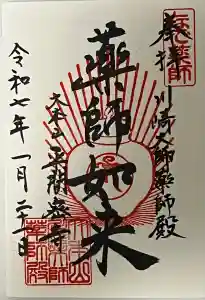 奉拝 川崎大師薬師殿
薬師如来
大本山 平間寺
令和七年一月二十一日
薬師殿